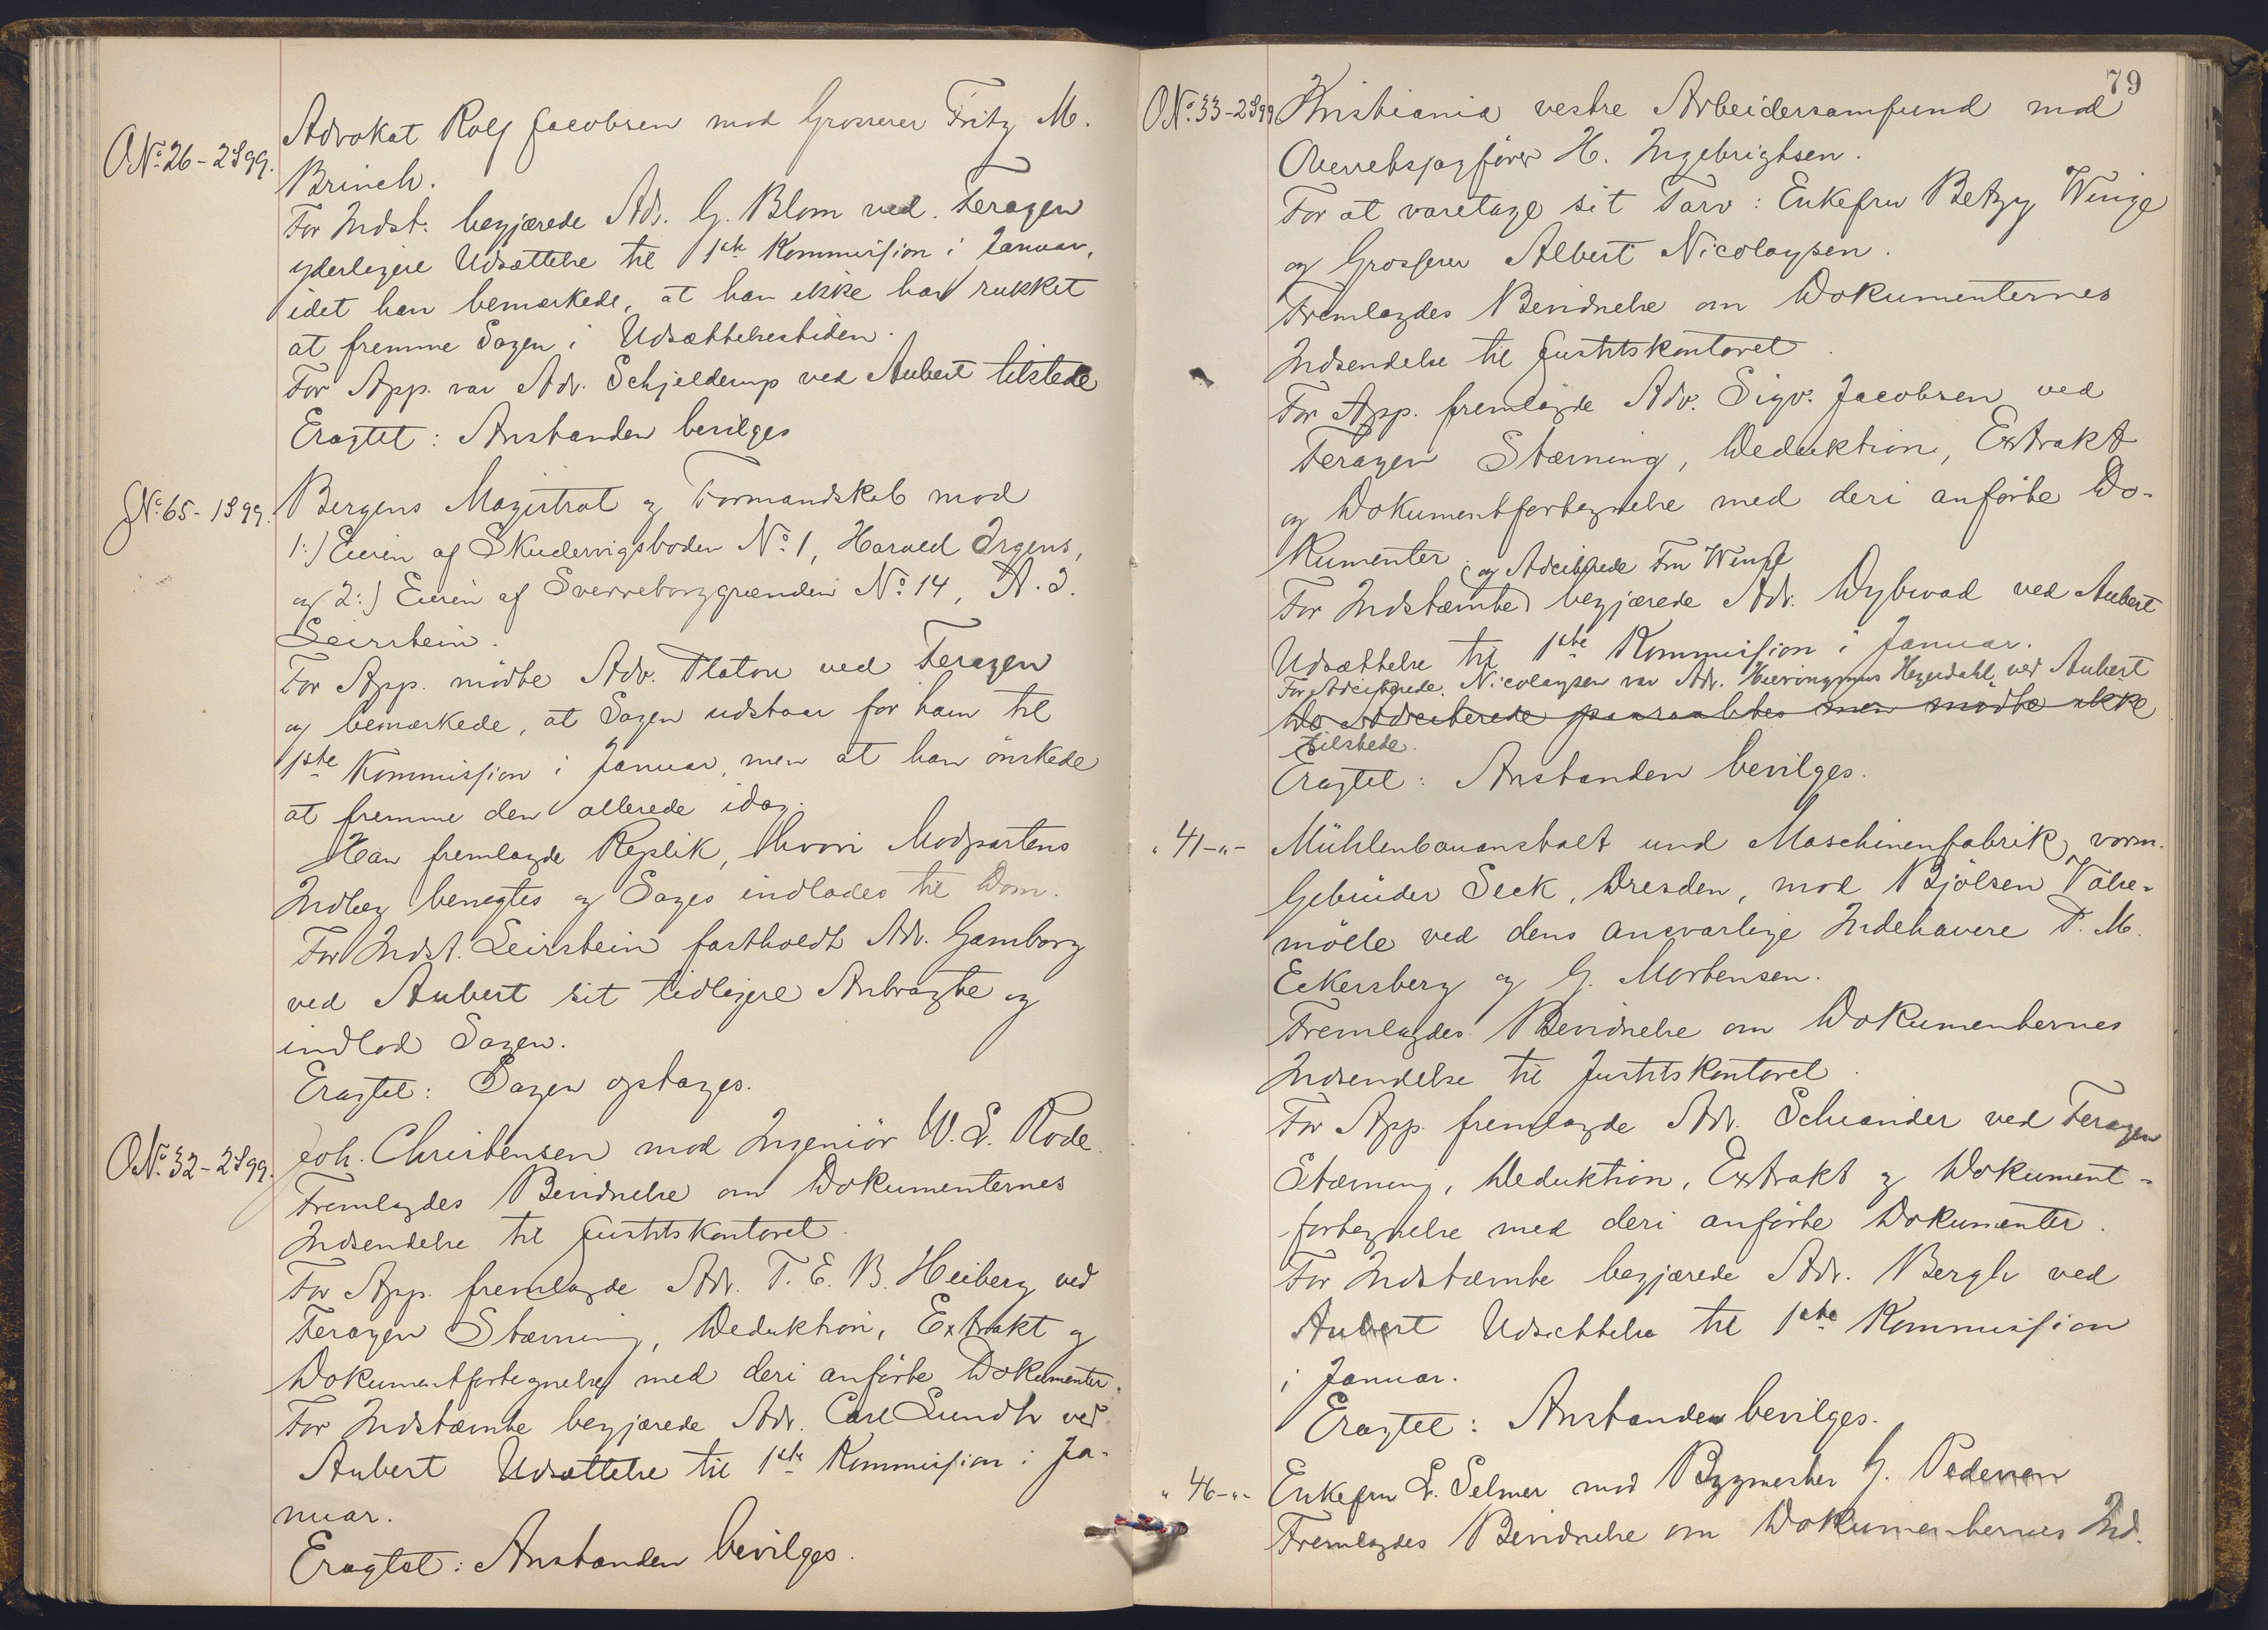 O.No. 26 - 2S 99.
Advokat Rolf Jacobsen mod Grosserer Fritz M.
Brinch.
For Indst. begjærede Adv. G. Blom ved Feragen
yderligere Udsættelse til 1ste Kommission i Januar,
idet han bemærkede, at han ikke har rukket
at fremme Sagen i Udsættelsestiden.
For App. var Adv. Schjelderup ved Aubert tilstede
Eragtet: Anstanden bevilges
No. 65 - 1S 99.
Bergens Magistrat og Formandskab mod
1:) Eieren af Skudervigsboden No. 1, Harald Irgens,
og 2:) Eieren af Sverreborggrænden No. 14, A. J.
Leirstein.
For App. mødte Adv. Platou ved Feragen
og bemærkede, at Sagen udstaar for ham til
1ste Kommission i Januar, men at han ønskede
at fremme den allerede idag.
Han fremlagde Replik, hvori Modpartens
Indlæg benegtes og Sagen indlades til Dom.
For Indst. Leirstein fastholdt Adv. Gamborg
ved Aubert sit tidligere Anbragte og
indlod Sagen.
Eragtet: Sagen optages.
O.No. 32 - 2S 99.
Joh. Christensen mod Ingeniør W. L. Rode.
Fremlagdes Bevidnelse om Dokumenternes
Indsendelse til Justitskontoret.
For App. fremlagde Adv. T. E. B. Heiberg ved
Feragen Stævning, Deduktion, Extrakt og
Dokumentfortegnelse med deri anførte Dokumenter.
For Indstæmte begjærede Adv. Carl Lundh ved
Aubert Udsættelse til 1ste Kommission i Ja-
nuar.
Eragtet: Anstanden bevilges.
79
O.No. 33 - 2S 99
Kristiania vestre Arbeidersamfund mod
Overretssagfører H. Ingebrigtsen.
For at varetage sit Tarv: Enkefru Betzy Winge
og Grosserer Albert Nicolaysen.
Fremlagdes Bevidnelse om Dokumenternes
Indsendelse til Justitskontoret.
For App. fremlagde Adv. Sigv. Jacobsen ved
Feragen Stævning, Deduktion, Extrakt
og Dokumentfortegnelse med deri anførte Do-
kumenter.
og Adciterede Fru Winge
For Indstæmte begjærede Adv. Dybwad ved Aubert
Udsættelse til 1ste Kommission i Januar.
For Adciterede Nicolaysen var Adv. Hieronymus Heyerdahl ved Aubert
De Adciterede paaraabtes men mødte ikke
tilstede.
Eragtet: Anstanden bevilges.
" 41 - " -
Mühlenbauanstalt und Maschinenfabrik, vorm.
Gebrüder Seck, Dresden, mod Bjølsen Valse-
mølle ved dens ansvarlige Indehavere P. M.
Eckersberg og G. Mortensen.
Fremlagdes Bevidnelse om Dokumenternes
Indsendelse til Justitskontoret.
For App. fremlagde Adv. Scheander ved Feragen
Stævning, Deduktion, Extrakt og Dokument-
fortegnelse med deri anførte Dokumenter.
For Indstæmte begjærede Adv. Bergh ved
Aubert Udsættelse til 1ste Kommission
i Januar.
Eragtet: Anstanden bevilges.
" 46 - " -
Enkefru L. Selmer mod Bygmester G. Pedersen
Fremlagdes Bevidnelse om Dokumenternes Ind.